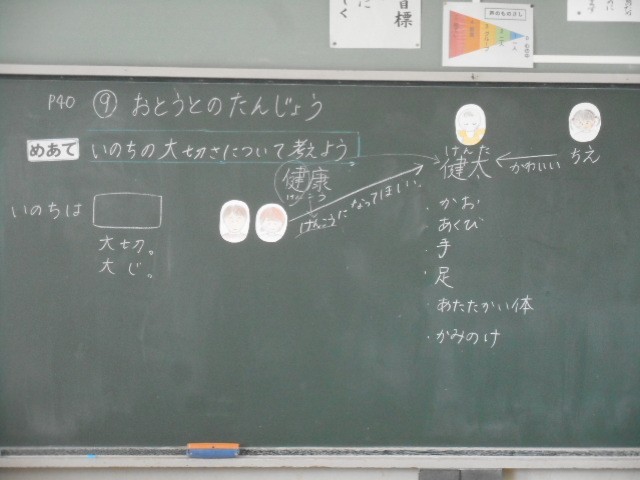 標
目
に
く
P40 ⑨ おとうとのたんじょう
めあて いのちの大切さについて考えよう。
いのちは
大切。
大じ。
健康
けんこう
けんこうになってほしい。
けんた
健太
かわいい
ちえ
・かお
・あくび
・手
・足
・あたたかい体
・かみのけ